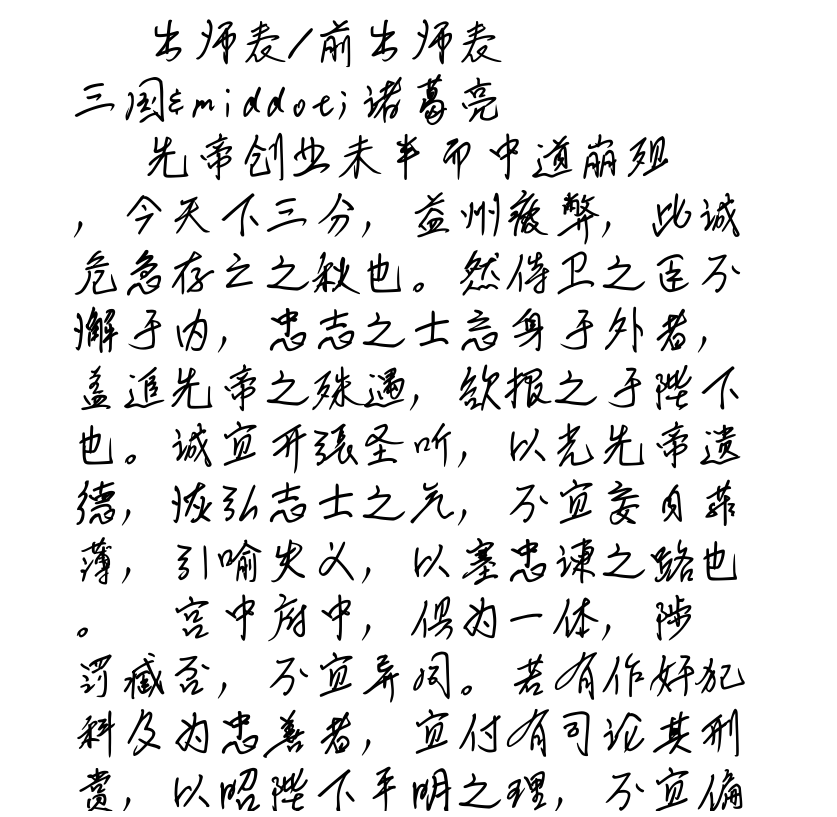 出师表/前出师表
三国&middot;诸葛亮
先帝创业未半而中道崩殂
，今天下三分，益州疲弊，此诚
危急存亡之秋也。然侍卫之臣不
懈于内，忠志之士忘身于外者，
盖追先帝之殊遇，欲报之于陛下
也。诚宜开张圣听，以光先帝遗
德，恢弘志士之气，不宜妄自菲
薄，引喻失义，以塞忠谏之路也
。 宫中府中，俱为一体，陟
罚臧否，不宜异同。若有作奸犯
科及为忠善者，宜付有司论其刑
赏，以昭陛下平明之理，不宜偏